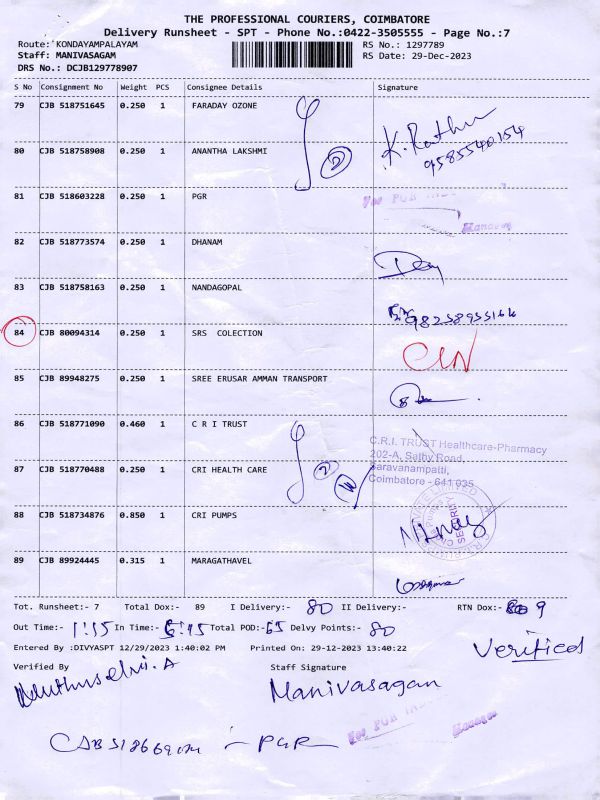 THE PROFESSIONAL COURIERS, COIMBATORE
Delivery Runsheet - SPT - Phone No.:0422-3505555 - Page No.:7
Route: KONDAYAMPALAYAM
RS No.: 1297789
Staff: MANIVASAGAM
RS Date: 29-Dec-2023
DRS No.: DCJB129778907
S No Consignment No Weight PCS Consignee Details Signature
79 CJB 518751645 0.250 1 FARADAY OZONE
K. Rathu
9585540154
80 CJB 518758908 0.250 1 ANANTHA LAKSHMI
2
81 CJB 518603228 0.250 1 PGR
For PGR
Manager
82 CJB 518773574 0.250 1 DHANAM
83 CJB 518758163 0.250 1 NANDAGOPAL
84 CJB 80094314 0.250 1 SRS COLECTION
85 CJB 89948275 0.250 1 SREE ERUSAR AMMAN TRANSPORT
86 CJB 518771090 0.460 1 C R I TRUST
C.R.I. TRUST Healthcare-Pharmacy
202-A, Sathy Road,
Saravanampatti,
Coimbatore - 641 035
87 CJB 518770488 0.250 1 CRI HEALTH CARE
2
88 CJB 518734876 0.850 1 CRI PUMPS
SECURITY
89 CJB 89924445 0.315 1 MARAGATHAVEL
Tot. Runsheet:- 7 Total Dox:- 89 I Delivery:- 80 II Delivery:- RTN Dox:- 9
Out Time:- 1:15 In Time:- 6:45 Total POD:- 65 Delvy Points:- 80
Entered By :DIVYASPT 12/29/2023 1:40:02 PM Printed On: 29-12-2023 13:40:22
Verified
Verified By Staff Signature
Muthuselvi. A
Manivasagan
For PGR
Manager
- PGR